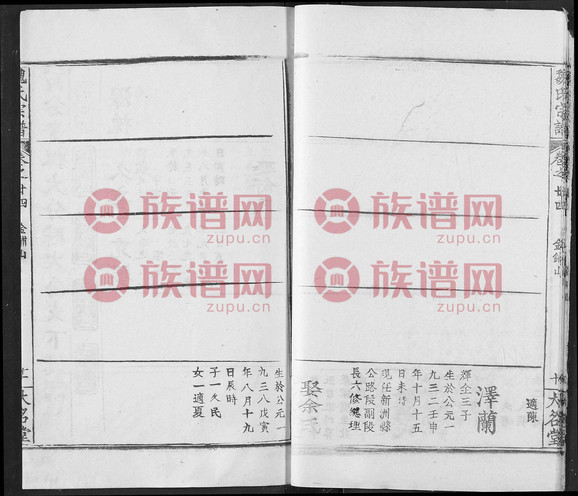 魏氏宗譜
卷之廿四
大名堂
適陳
澤蘭
輝全三子
生於公元一
九三二壬申
年十月十五
日未時
現任新洲縣
公路段副段
長六修總理
娶余氏
生於公元一
九三八戊寅
年八月十九
日辰時
子一久民
女一適夏
魏氏宗譜
卷之廿四
大名堂
族谱网
zupu.cn
族谱网
zupu.cn
族谱网
zupu.cn
族谱网
zupu.cn